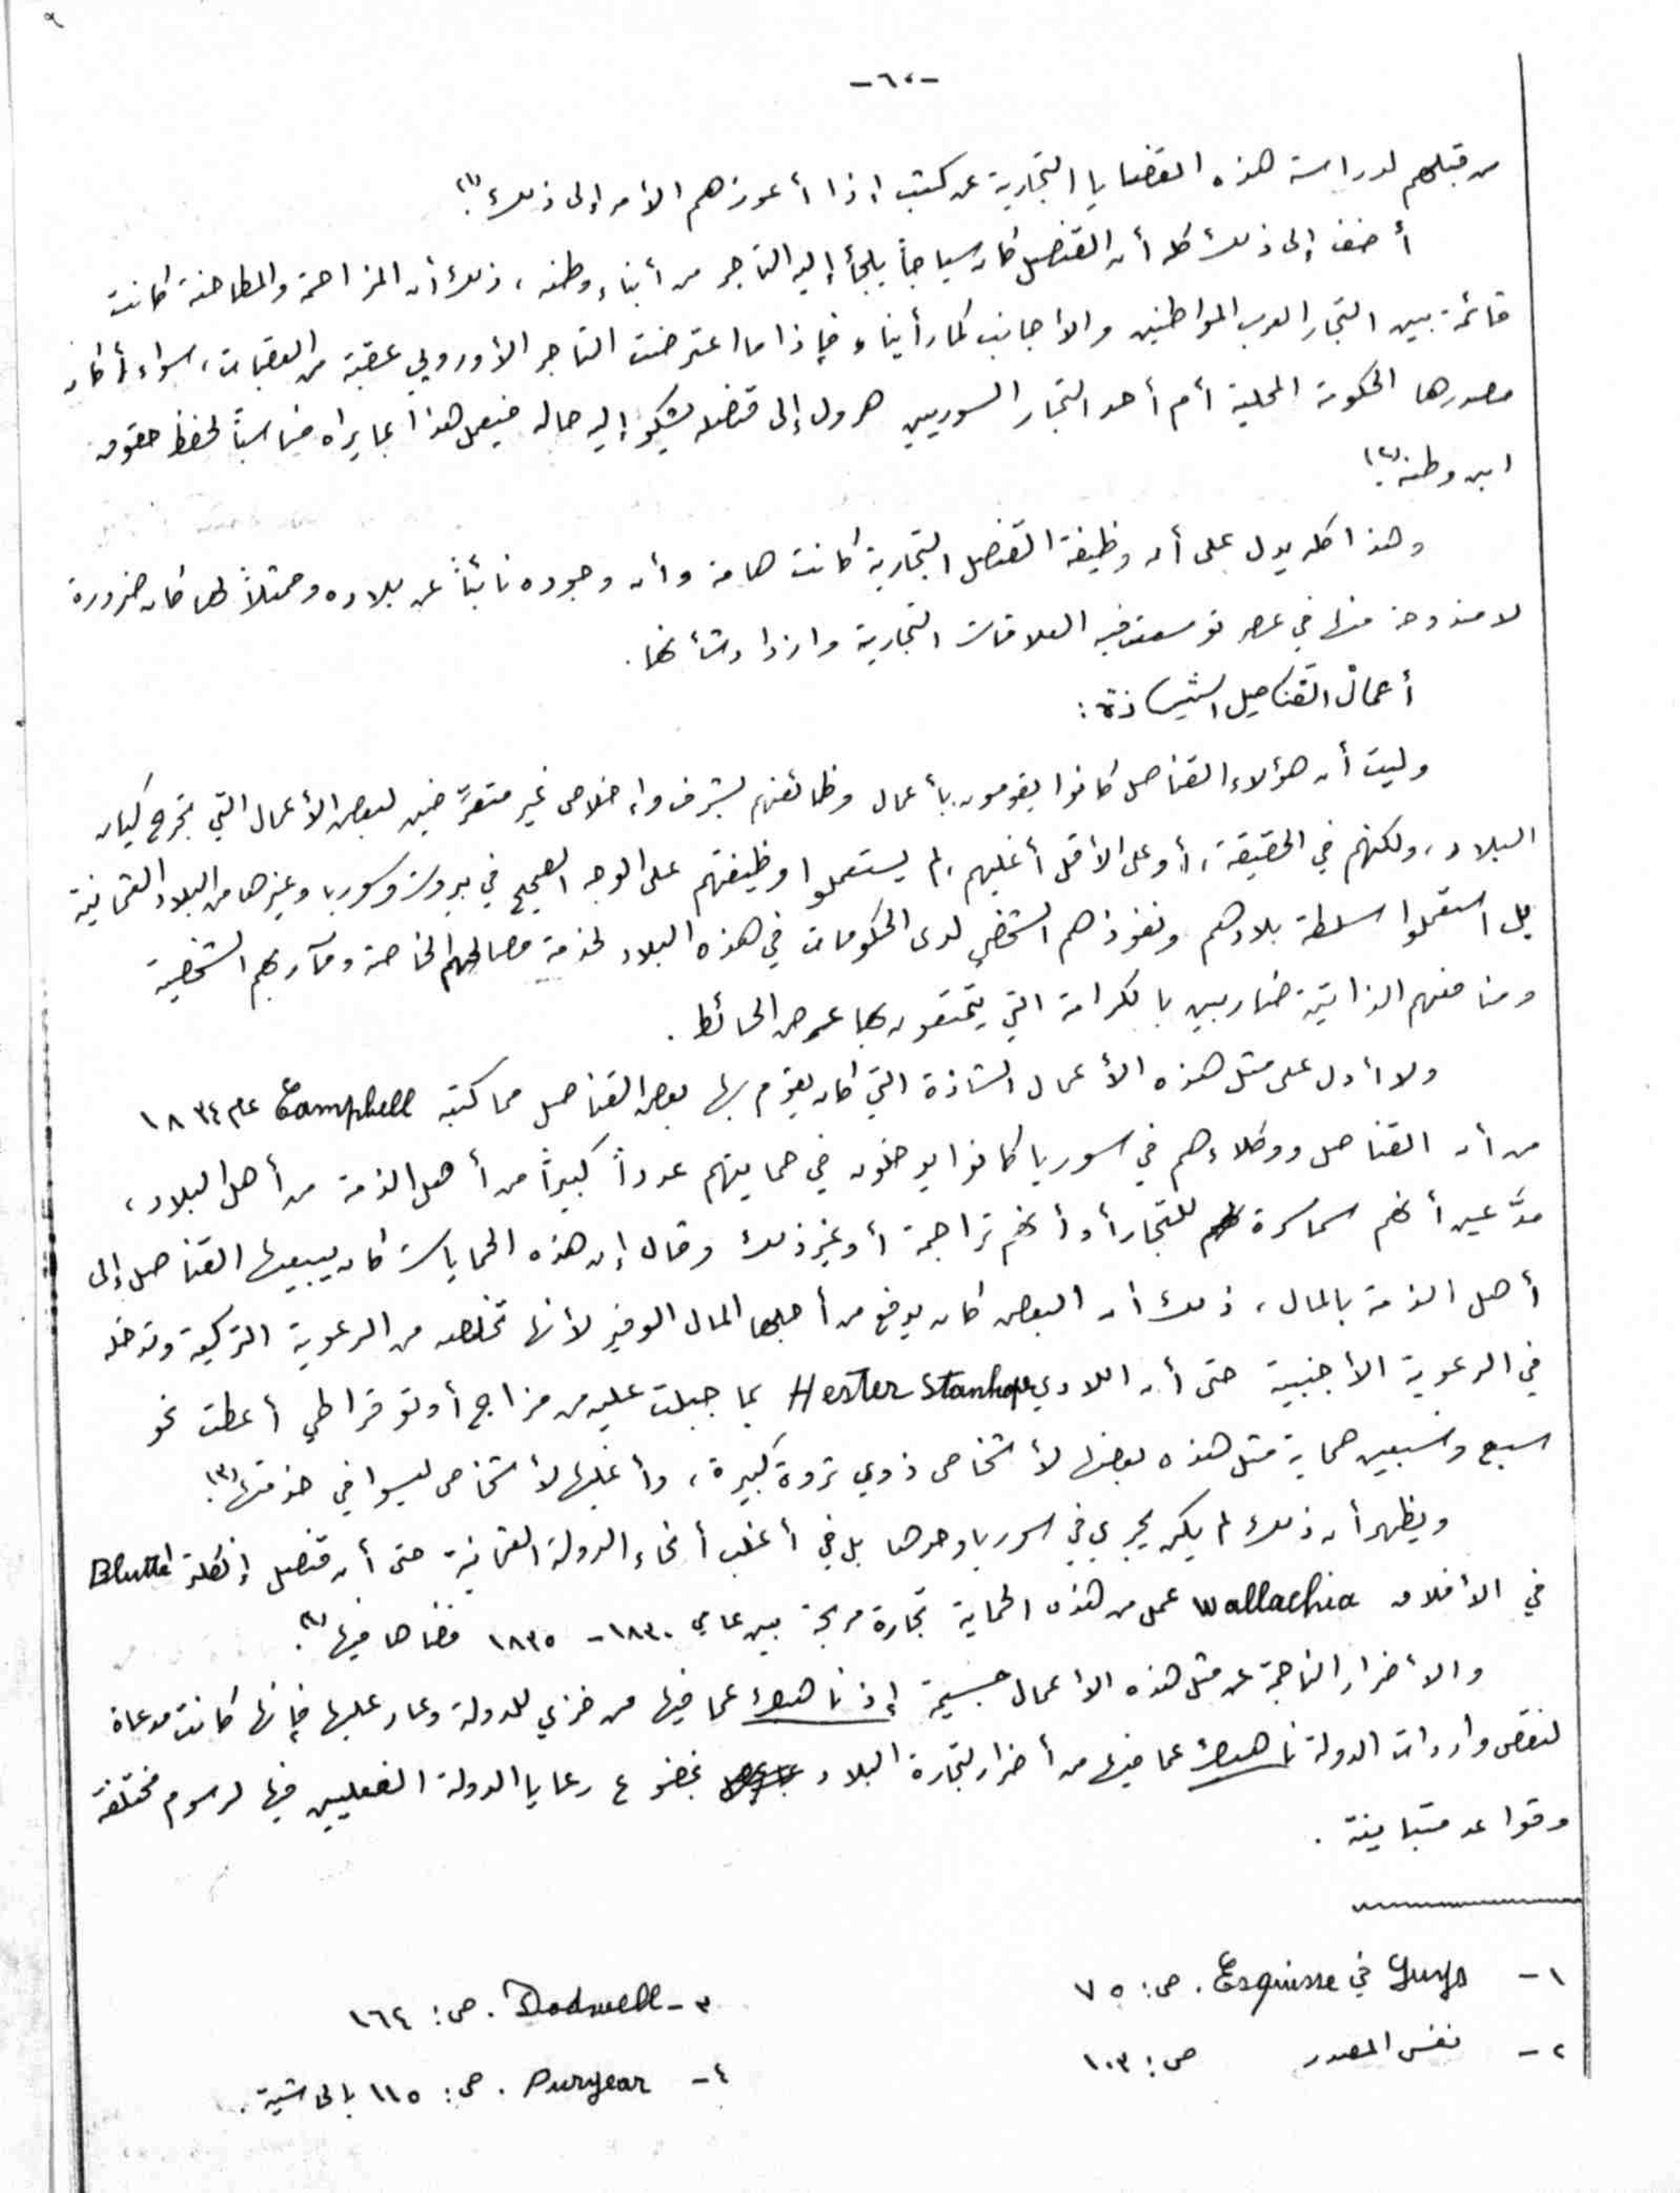 -٦٠-
من قبلهم لدراسة هذه القضايا التجارية عن كثب اذا أعوزهم الأمر إلى ذلك (١).
أضف إلى ذلك كله أن القنصل كان سياجاً يلجأ إليه التاجر من أبناء وطنه ، ذلك أن المزاحمة والمطاحنة كانت
قائمة بين التجار العرب المواطنين والأجانب كما رأينا ، فإذا ما اعترضت التاجر الأوروبي عقبة من العقبات ، سواء أكان
مصدرها الحكومة المحلية أم أحد التجار السوريين هرول إلى قنصله يشكو إليه حاله فيعمل هذا بما يراه مناسباً لحفظ حقوق
ابن وطنه (٢).
وهذا كله يدل على أن وظيفة القنصل التجارية كانت هامة وأن وجوده نائباً عن بلاده وممثلاً لها كان ضرورة
لا مندوحة منها في عصر توسعت فيه العلاقات التجارية وازداد شأنها .
أعمال القناصل الشاذة :
وليت أن هؤلاء القناصل كانوا يقومون بأعمال وظائفهم بشرف وإخلاص غير متعرّضين لبعض الأعمال التي تجرح كيان
البلاد ، ولكنهم في الحقيقة ، أو على الأقل أغلبهم ، لم يستعملوا وظيفتهم على الوجه الصحيح في بيروت وسوريا وغيرها من البلاد العثمانية
بل استعملوا سلطة بلادهم ونفوذهم الشخصي لدى الحكومات في هذه البلاد لخدمة مصالحهم الخاصة ومآربهم الشخصية
ومنافعهم الذاتية ضاربين بالكرامة التي يتمتعون بها عرض الحائط .
ولا أدل على مثل هذه الأعمال الشاذة التي كان يقوم بها بعض القناصل مما كتبه Camphell عام ١٨٣٤
من أن القناصل ووكلاءهم في سوريا كانوا يدخلون في حمايتهم عدداً كبيراً من أهل الذمة من أهل البلاد ،
مدّعين أنهم سماسرة للتجار أو أنهم تراجمة أو غير ذلك وقال إن هذه الحمايات كان يبيعها القناصل إلى
أهل الذمة بالمال ، ذلك أن البعض كان يدفع من أجلها المال الوفير لأنها تخلصه من الرعوية التركية وتدخله
في الرعوية الأجنبية حتى أن اللادي Hester Stanhope بما جبلت عليه من مزاج أوتوقراطي أعطت نحو
سبع وسبعين حماية مثل هذه بعضها لأشخاص ذوي ثروة كبيرة ، وأغلبها لأشخاص ليسوا في خدمتها (٣).
ويظهر أن ذلك لم يكن يجري في سوريا وحدها بل في أغلب أنحاء الدولة العثمانية حتى أن قنصل إنكلترا Blutte
في الأفلاق Wallachia عمل من هذه الحماية تجارة مربحة بين عامي ١٨٣٠ - ١٨٣٥ قضاها فيها (٤).
والأضرار الناجمة عن مثل هذه الأعمال جسيمة إذ ناهيك عما فيها من خزي للدولة وعار عليها فإنها كانت مدعاة
لنقص واردات الدولة ناهيك عما فيها من أضرار لتجارة البلاد بخضوع رعايا الدولة الفعليين فيها لرسوم مختلفة
وقواعد متباينة .
١- Guys في Esquisse . ص : ٧٥
٢- نفس المصدر ص : ١٠٣
٣- Dodwell . ص : ١٦٤
٤- Puryear . ص : ١١٥ بالحاشية .